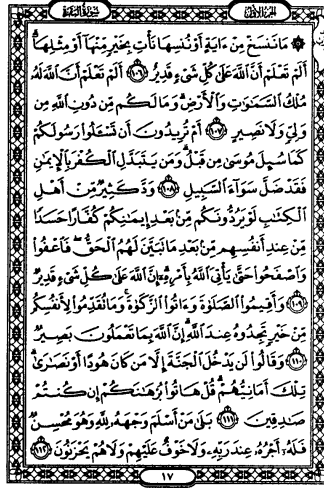 سورة البقرة الجزء الأول
۞ مَا نَنسَخْ مِنْ ءَايَةٍ أَوْ نُنسِهَا نَأْتِ بِخَيْرٍ مِّنْهَآ أَوْ مِثْلِهَآ
أَلَمْ تَعْلَمْ أَنَّ ٱللَّهَ عَلَىٰ كُلِّ شَىْءٍ قَدِيرٌ ١٠٦ أَلَمْ تَعْلَمْ أَنَّ ٱللَّهَ لَهُۥ
مُلْكُ ٱلسَّمَٰوَٰتِ وَٱلْأَرْضِ وَمَا لَكُم مِّن دُونِ ٱللَّهِ مِن
وَلِىٍّ وَلَا نَصِيرٍ ١٠٧ أَمْ تُرِيدُونَ أَن تَسْـَٔلُوا۟ رَسُولَكُمْ
كَمَا سُئِلَ مُوسَىٰ مِن قَبْلُ وَمَن يَتَبَدَّلِ ٱلْكُفْرَ بِٱلْإِيمَٰنِ
فَقَدْ ضَلَّ سَوَآءَ ٱلسَّبِيلِ ١٠٨ وَدَّ كَثِيرٌ مِّنْ أَهْلِ
ٱلْكِتَٰبِ لَوْ يَرُدُّونَكُم مِّنۢ بَعْدِ إِيمَٰنِكُمْ كُفَّارًا حَسَدًا
مِّنْ عِندِ أَنفُسِهِم مِّنۢ بَعْدِ مَا تَبَيَّنَ لَهُمُ ٱلْحَقُّ فَٱعْفُوا۟
وَٱصْفَحُوا۟ حَتَّىٰ يَأْتِىَ ٱللَّهُ بِأَمْرِهِۦٓ إِنَّ ٱللَّهَ عَلَىٰ كُلِّ شَىْءٍ قَدِيرٌ
١٠٩ وَأَقِيمُوا۟ ٱلصَّلَوٰةَ وَءَاتُوا۟ ٱلزَّكَوٰةَ وَمَا تُقَدِّمُوا۟ لِأَنفُسِكُم
مِّنْ خَيْرٍ تَجِدُوهُ عِندَ ٱللَّهِ إِنَّ ٱللَّهَ بِمَا تَعْمَلُونَ بَصِيرٌ
١١٠ وَقَالُوا۟ لَن يَدْخُلَ ٱلْجَنَّةَ إِلَّا مَن كَانَ هُودًا أَوْ نَصَٰرَىٰ
تِلْكَ أَمَانِيُّهُمْ قُلْ هَاتُوا۟ بُرْهَٰنَكُمْ إِن كُنتُمْ
صَٰدِقِينَ ١١١ بَلَىٰ مَنْ أَسْلَمَ وَجْهَهُۥ لِلَّهِ وَهُوَ مُحْسِنٌ
فَلَهُۥٓ أَجْرُهُۥ عِندَ رَبِّهِۦ وَلَا خَوْفٌ عَلَيْهِمْ وَلَا هُمْ يَحْزَنُونَ ١١٢
١٧